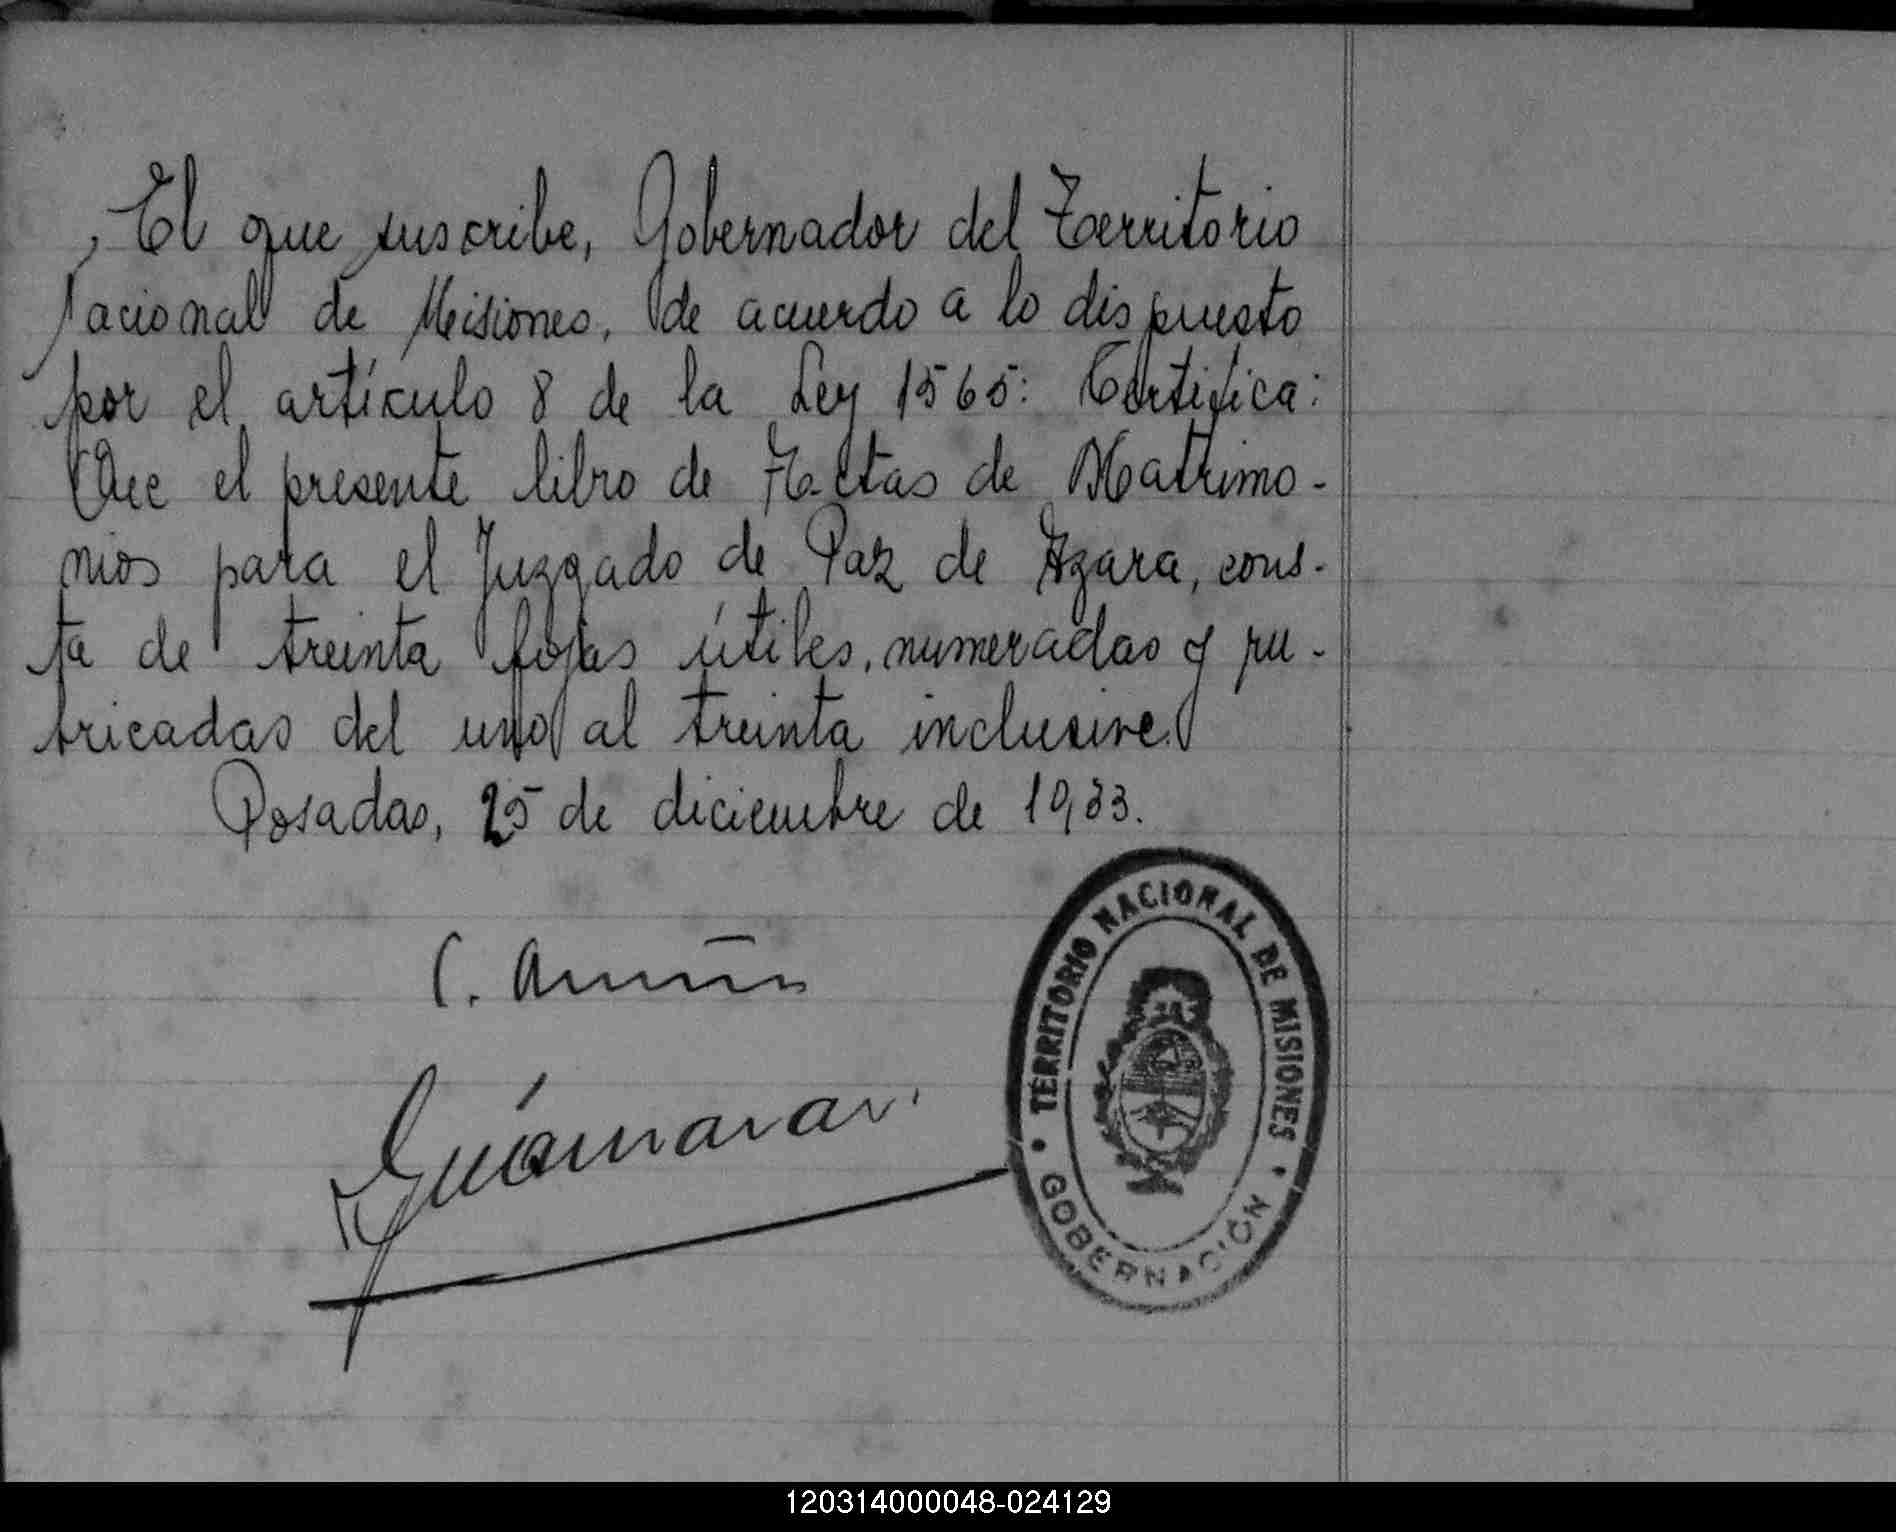 El que suscribe, Gobernador del Territorio
Nacional de Misiones, de acuerdo a lo dispuesto
por el artículo 8 de la Ley 1565: Certifica:
Que el presente libro de Actas de Matrimo-
nios para el Juzgado de Paz de Azara, cons-
ta de treinta fojas útiles, numeradas y ru-
bricadas del uno al treinta inclusive.
Posadas, 25 de diciembre de 1933.
C. 
TERRITORIO NACIONAL DE MISIONES
GOBERNACIÓN
120314000048-024129